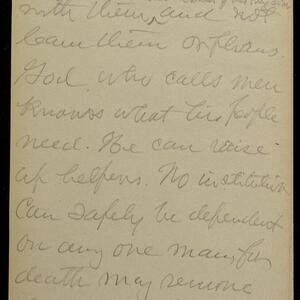 with them, and not
leave them orphans.
God, who calls men
knows what his people
need. He can raise
up helpers. No institution
can safely be dependent
on any one man, for
death may remove